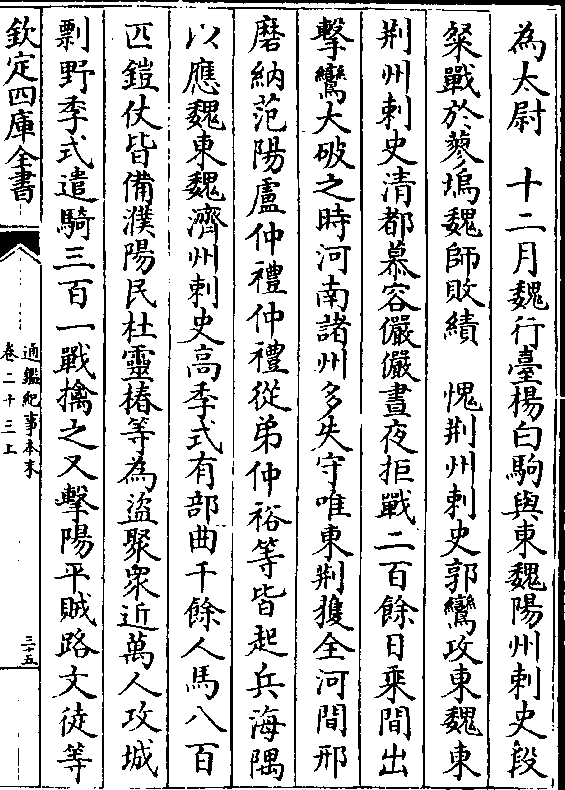 為太尉　十二月魏行臺楊白駒與東魏陽州刺史段
粲戰於蓼塢魏師敗績　愧荆州刺史郭鸞攻東魏東
荆州刺史清都慕容儼儼晝夜拒戰二百餘日乘間出
擊鸞大破之時河南諸州多失守唯東荆獲全河間邢
磨納范陽盧仲禮仲禮從弟仲裕等皆起兵海隅
以應魏東魏濟州刺史高季式有部曲千餘人馬八百
匹鎧仗皆備濮陽民杜靈椿等為盗聚衆近萬人攻城
剽野季式遣騎三百一戰擒之又擊陽平賊路文徒等
欽定四庫全書
通鑑紀事本末
卷二十三上
三十五